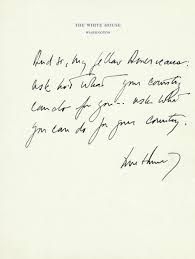 THE WHITE HOUSE
WASHINGTON
And so, my fellow Americans:
ask not what your country
can do for you - ask what
you can do for your country.